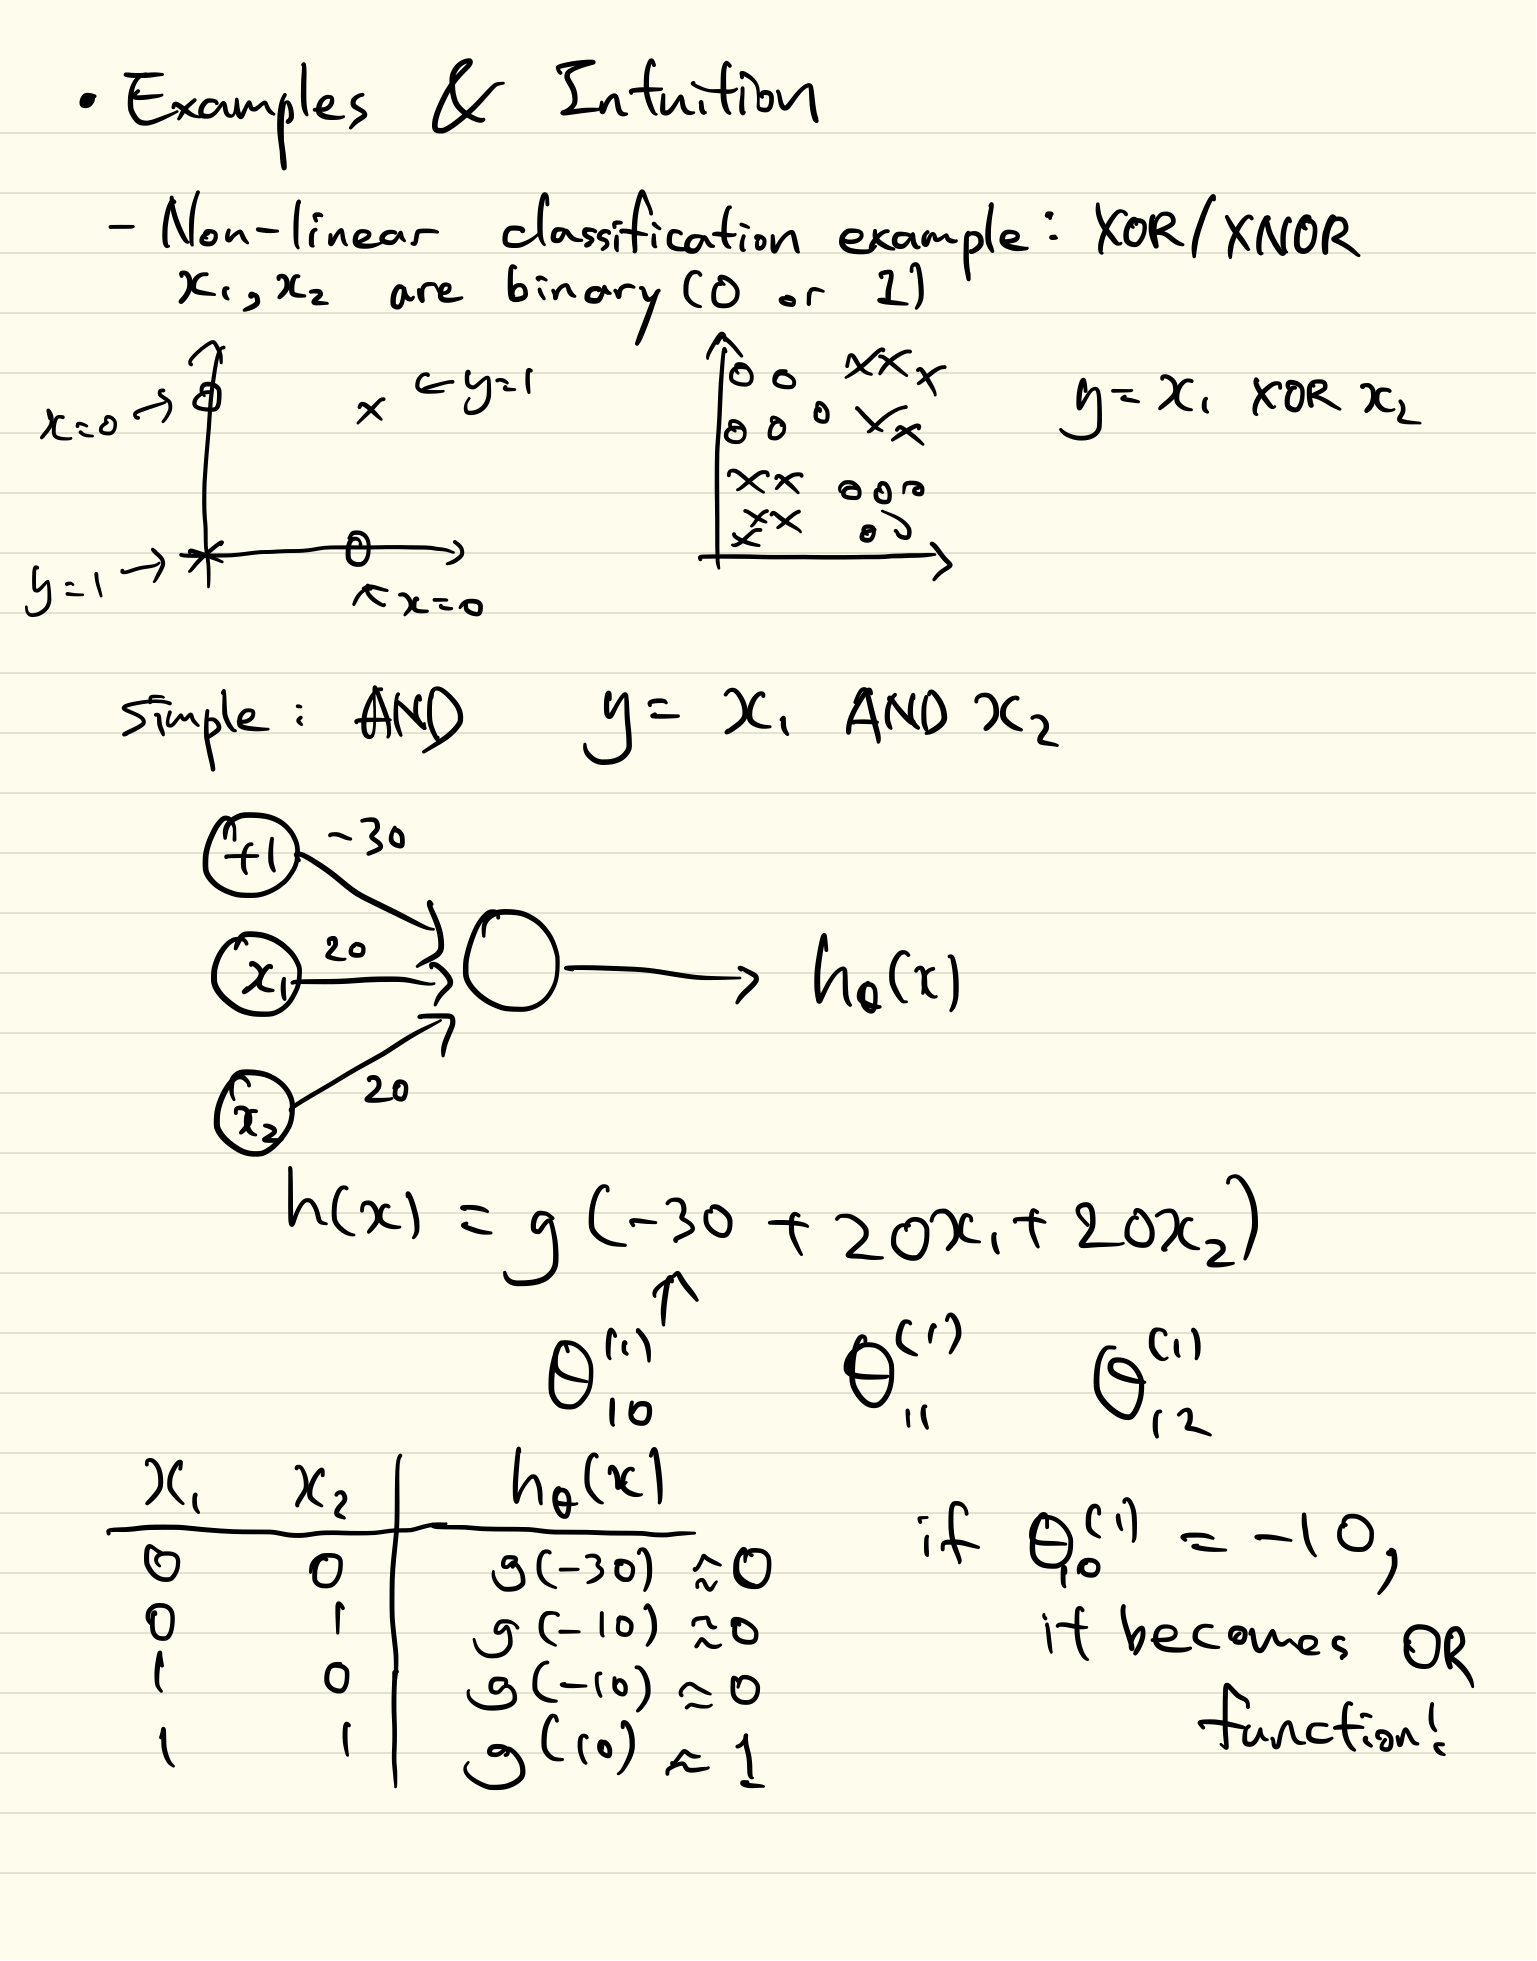 • Examples & Intuition
- Non-linear classification example: XOR/XNOR
x₁, x₂ are binary (0 or 1)
x=0 → ← y=1
y = x₁ XOR x₂
y=1 →
↖ x=0
simple: AND y = x₁ AND x₂
+1 -30
x₁ 20
h_θ(x)
x₂ 20
h(x) = g(-30 + 20x₁ + 20x₂)
↑
θ₁₀⁽¹⁾ θ₁₁⁽¹⁾ θ₁₂⁽¹⁾
x₁ x₂ h_θ(x)
0 0 g(-30) ≈ 0
0 1 g(-10) ≈ 0
1 0 g(-10) ≈ 0
1 1 g(10) ≈ 1
if θ₁₀⁽¹⁾ = -10,
it becomes OR
function!